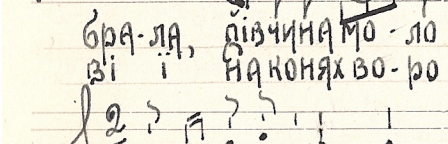 бра-ла, дівчина мо-ло
ві ї на конях во-ро
2